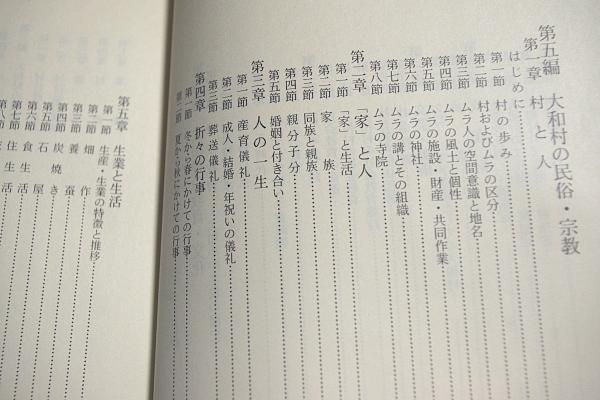 第五編　大和村の民俗・宗教
第一章　村と人
はじめに
第一節　村の歩み
第二節　村およびムラの区分
第三節　ムラ人の空間意識と地名
第四節　ムラの風土と個性
第五節　ムラの施設・財産・共同作業
第六節　ムラの神社
第七節　ムラの講とその組織
第八節　ムラの寺院
第二章　「家」と人
第一節　「家」と生活
第二節　家族
第三節　同族と親族
第四節　親分子分
第五節　婚姻と付き合い
第三章　人の一生
第一節　産育儀礼
第二節　成人・結婚・年祝いの儀礼
第三節　葬送儀礼
第四章　折々の行事
第一節　冬から春にかけての行事
第二節　夏から秋にかけての行事
第五章　生業と生活
第一節　生産・生業の特徴と推移
第二節　畑作
第三節　養蚕
第四節　炭焼き
第五節　石屋
第六節　食生活
第七節　住生活
第八節